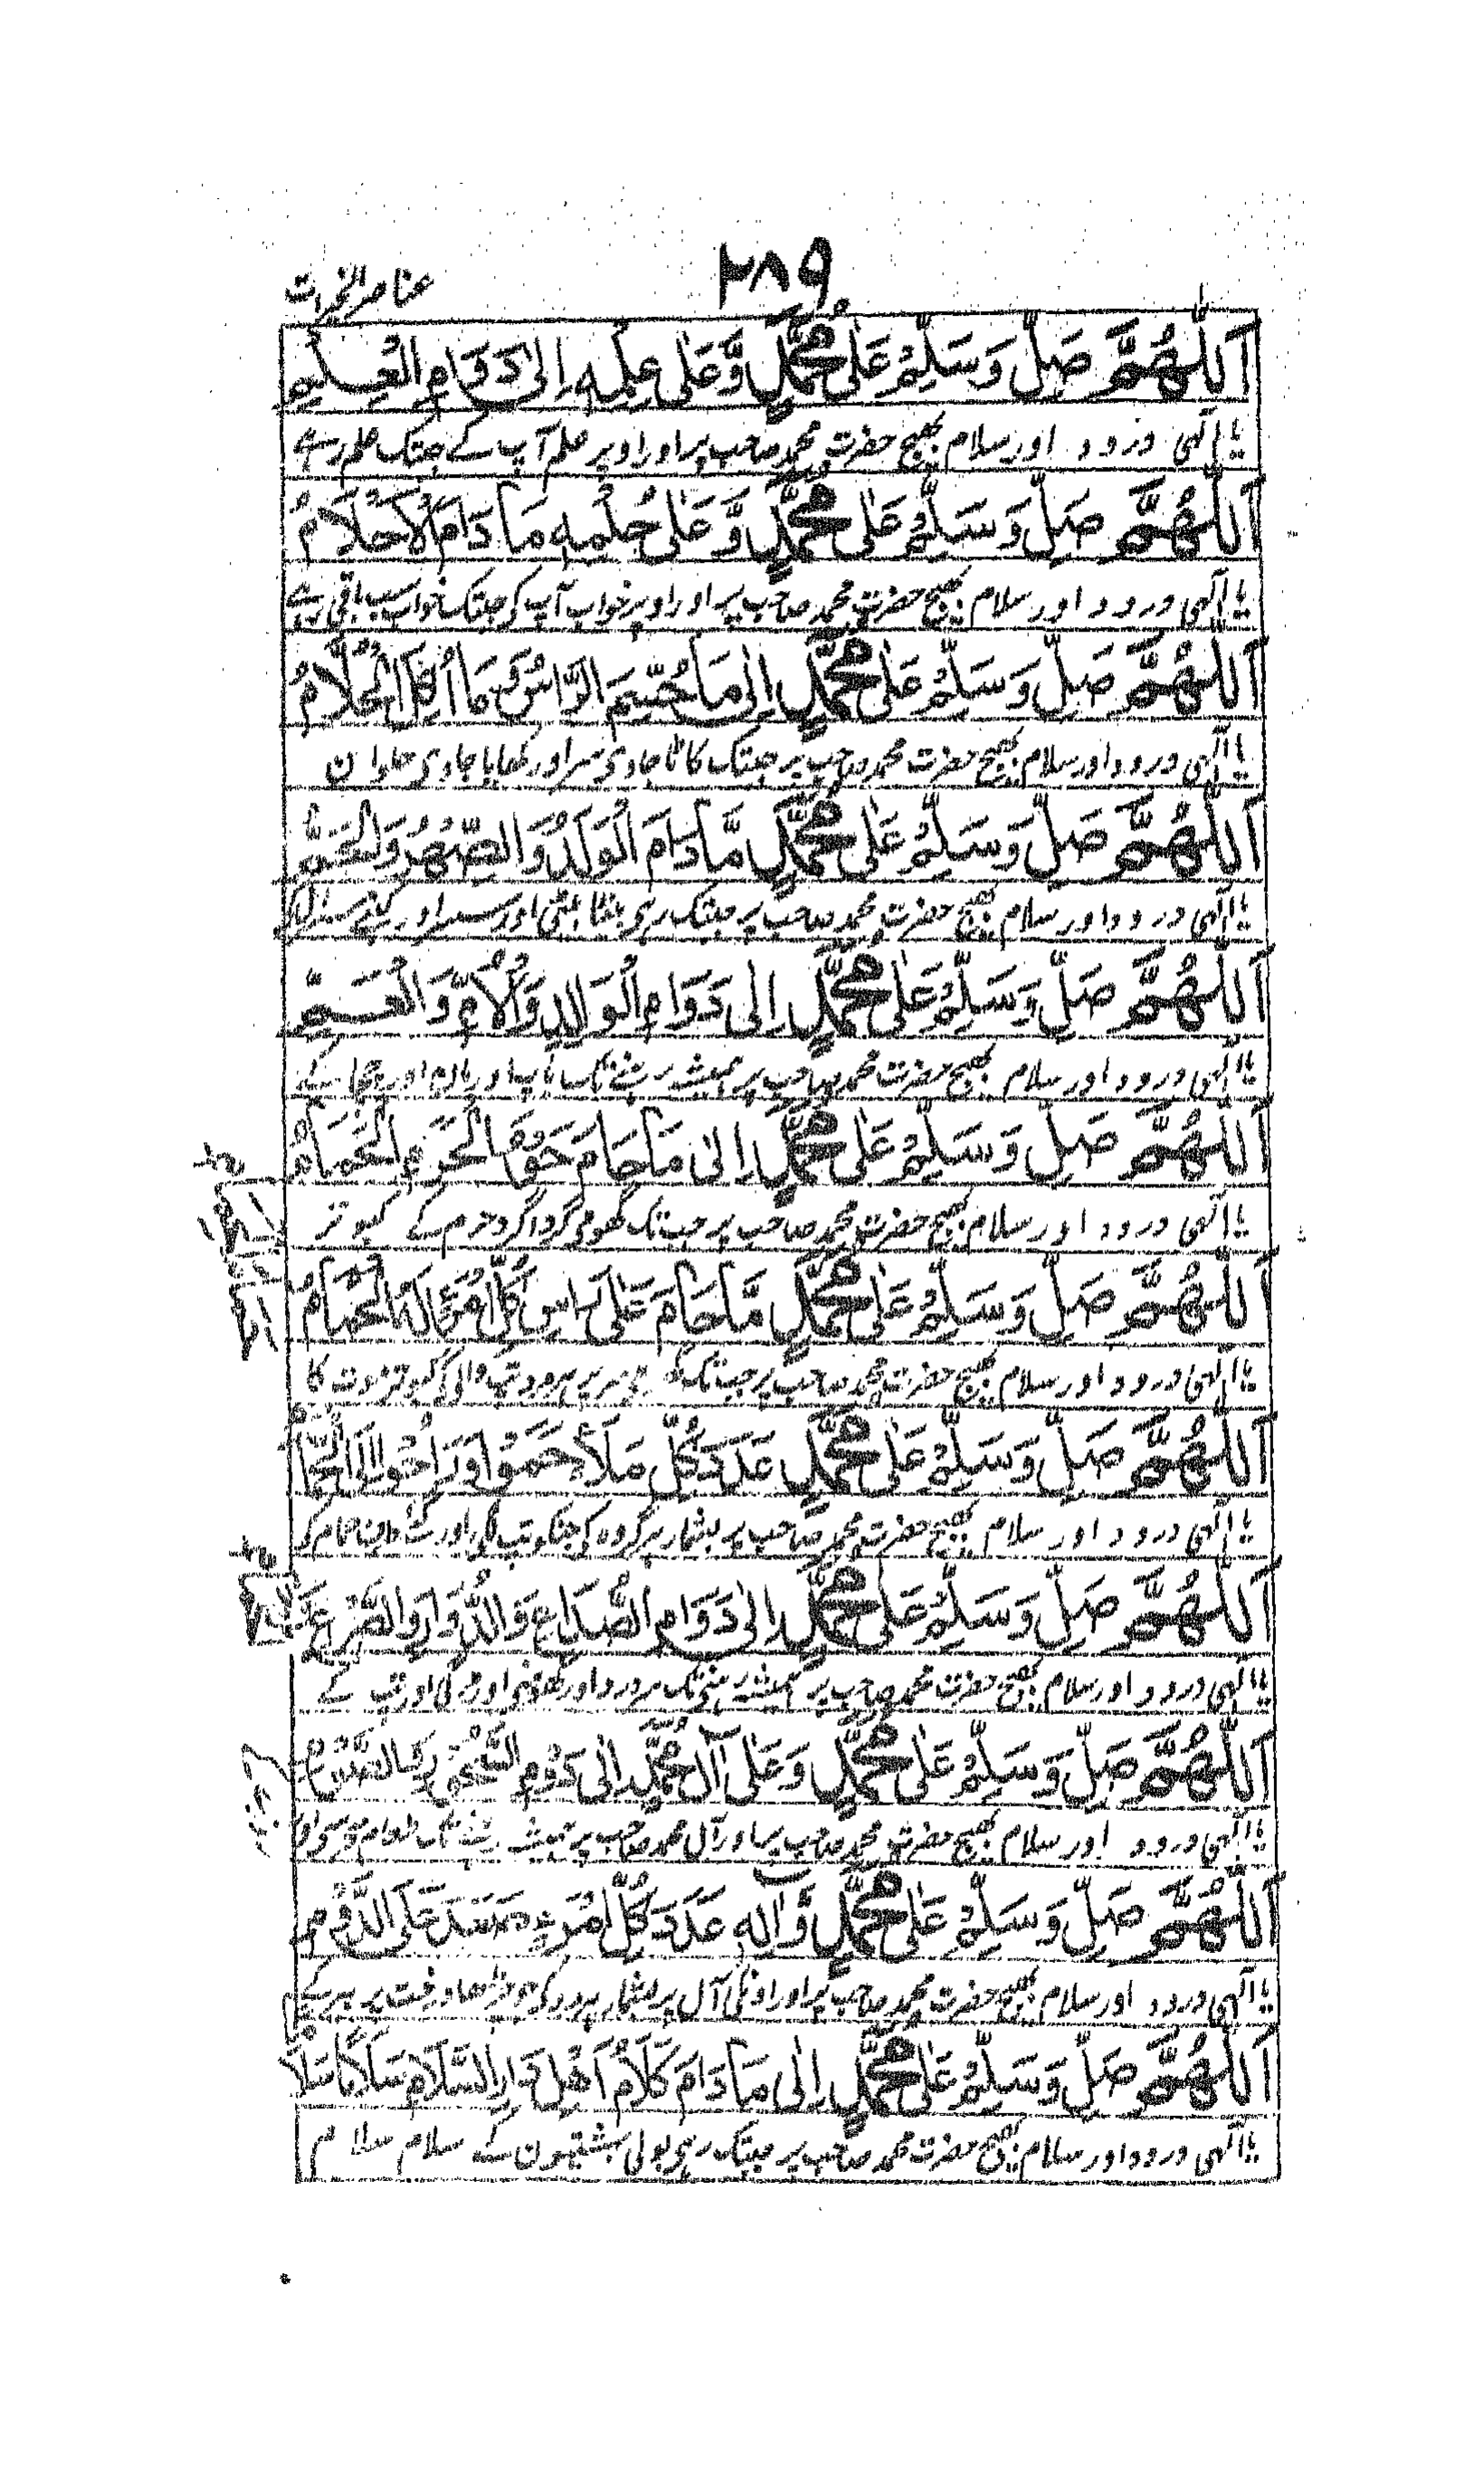 ۲۸۹
عناصر الخیرات
اَللّٰهُمَّ صَلِّ وَسَلِّمْ عَلٰى مُحَمَّدٍ وَّعَلٰى عِلْمِهٖ اِلٰى دَوَامِ الْعِلْمِ
یا الٰہی درود اور سلام بھیج حضرت محمد صاحب پر اور اوپر علم آپ کے جبتک علم رہے
اَللّٰهُمَّ صَلِّ وَسَلِّمْ عَلٰى مُحَمَّدٍ وَّعَلٰى حُلْمِهٖ مَا دَامَ الْاَحْلَامُ
یا الٰہی درود اور سلام بھیج حضرت محمد صاحب پر اور اوپر خواب آپ کو جبتک خواب سب باقی رہے
اَللّٰهُمَّ صَلِّ وَسَلِّمْ عَلٰى مُحَمَّدٍ اِلٰى مَا حُسِمَ الرَّاْسُ وَمَا اُكِلَ الْحُلَّامُ
یا الٰہی درود اور سلام بھیج حضرت محمد صاحب پر جبتک کاٹا جاوی سر اور کھایا جاوی حلوان
اَللّٰهُمَّ صَلِّ وَسَلِّمْ عَلٰى مُحَمَّدٍ مَّا دَامَ الْوَلَدُ وَالصِّهْرُ وَالْحَمُّ
یا الٰہی درود اور سلام بھیج حضرت محمد صاحب پر جبتک رہی بیٹا بیٹی اور
اَللّٰهُمَّ صَلِّ وَسَلِّمْ عَلٰى مُحَمَّدٍ اِلٰى دَوَامِ الْوَالِدِ وَالْاُمِّ وَالْعَمِّ
یا الٰہی درود اور سلام بھیج حضرت محمد صاحب پر ہمیشہ رہنے تک باپ اور مان اور چچا کے
اَللّٰهُمَّ صَلِّ وَسَلِّمْ عَلٰى مُحَمَّدٍ اِلٰى مَا حَامَ حَوْلَ الْحَرَمِ الْحَمَامُ
یا الٰہی درود اور سلام بھیج حضرت محمد صاحب پر جبتک گھومی گرداگرد حرم کے کبوتر
اَللّٰهُمَّ صَلِّ وَسَلِّمْ عَلٰى مُحَمَّدٍ مَّا حَامَ عَلٰى رَاْسِ كُلِّ امْرَءٍ الْحَمَامُ
یا الٰہی درود اور سلام بھیج حضرت محمد صاحب پر جبتک سر پر کبوتر موت کا
اَللّٰهُمَّ صَلِّ وَسَلِّمْ عَلٰى مُحَمَّدٍ عَدَدَ كُلِّ مَلَاٍ حَمُوْا وَرَاحُوْا اِلَى الْحَمَّامِ
یا الٰہی درود اور سلام بھیج حضرت محمد صاحب پر بشمار ہر گروہ کی جنکو تپ لگی اور حمام کو
اَللّٰهُمَّ صَلِّ وَسَلِّمْ عَلٰى مُحَمَّدٍ اِلٰى دَوَامِ الصُّدَاعِ وَالدُّوَارِ وَالصَّرْعِ
یا الٰہی درود اور سلام بھیج حضرت محمد صاحب پر ہمیشہ رہنی تک سر درد اور گھومنی اور مرگی اور تپ کے
اَللّٰهُمَّ صَلِّ وَسَلِّمْ عَلٰى مُحَمَّدٍ وَعَلٰى اٰلِ مُحَمَّدٍ اِلٰى
یا الٰہی درود اور سلام بھیج حضرت محمد صاحب پر اور آل محمد صاحب پر ہمیشہ رہنے تک طعام
اَللّٰهُمَّ صَلِّ وَسَلِّمْ عَلٰى مُحَمَّدٍ وَّاٰلِهٖ عَدَدَ كُلِّ امْرَءٍ صَعِدَ عَلَى الدَّوْمِ
یا الٰہی درود اور سلام بھیج حضرت محمد صاحب پر اور اونکی آل پر بشمار ہر مرد کی جو چڑھا درخت پر بیر کے
اَللّٰهُمَّ صَلِّ وَسَلِّمْ عَلٰى مُحَمَّدٍ اِلٰى مَا دَامَ كَلَامُ اَهْلِ دَارِ السَّلَامِ سَلَامًا سَلَامًا
یا الٰہی درود اور سلام بھیج حضرت محمد صاحب پر جبتک رہی بولی بہشتیون کے سلام سلام